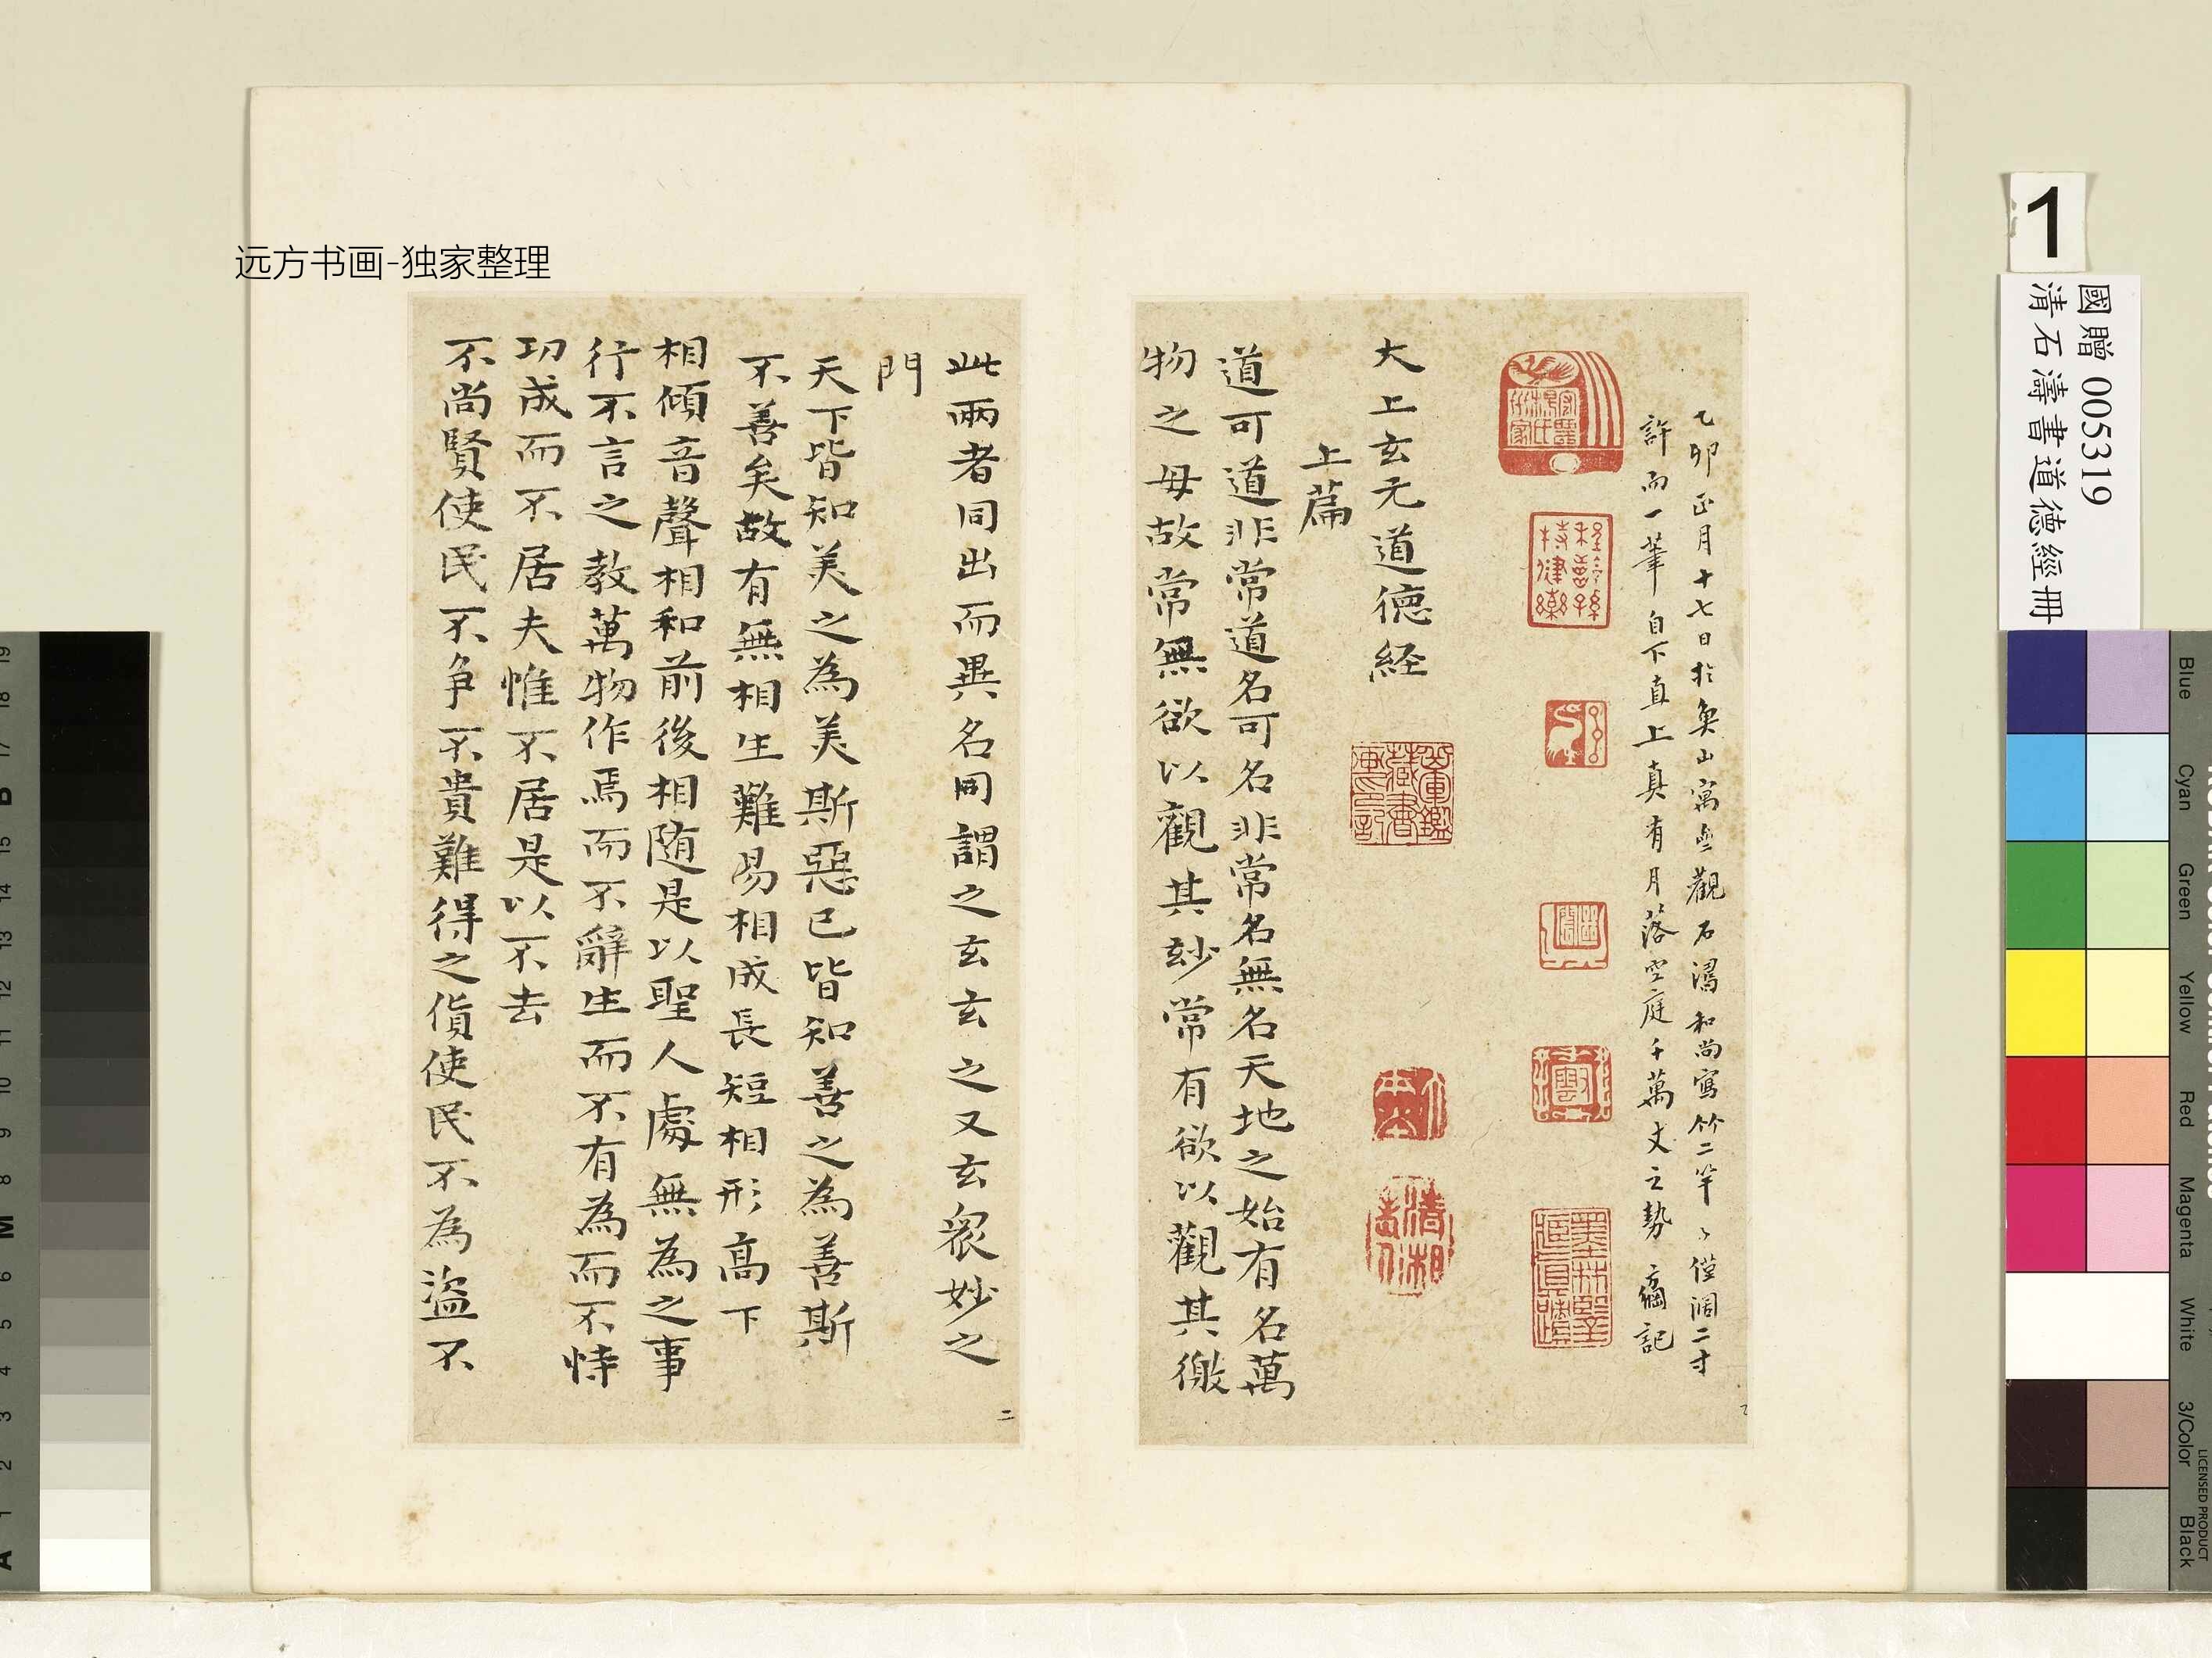 远方书画-独家整理
1
國贈 005319
清石濤書道德經冊
乙卯正月十七日於奐山寓無觀石濤和尚寫竹二竿〻僅濶二寸
許而一筆自下直上真有月落空庭千萬丈之勢 記
大上玄元道德経
上篇
道可道非常道名可名非常名無名天地之始有名萬
物之母故常無欲以觀其玅常有欲以觀其徼
此兩者同出而異名同謂之玄玄之又玄衆妙之
門
天下皆知美之為美斯惡已皆知善之為善斯
不善矣故有無相生難易相成長短相形高下
相傾音聲相和前後相随是以聖人處無為之事
行不言之教萬物作焉而不辭生而不有為而不恃
功成而不居夫惟不居是以不去
不尚賢使民不争不貴難得之貨使民不為盜不
二
Blue
Cyan
Green
Yellow
Red
Magenta
White
3/Color
Black
LICENSED PRODUCT
A 1 2 3 4 5 6 M 8 9 10 11 12 13 14 15 B 17 18 19